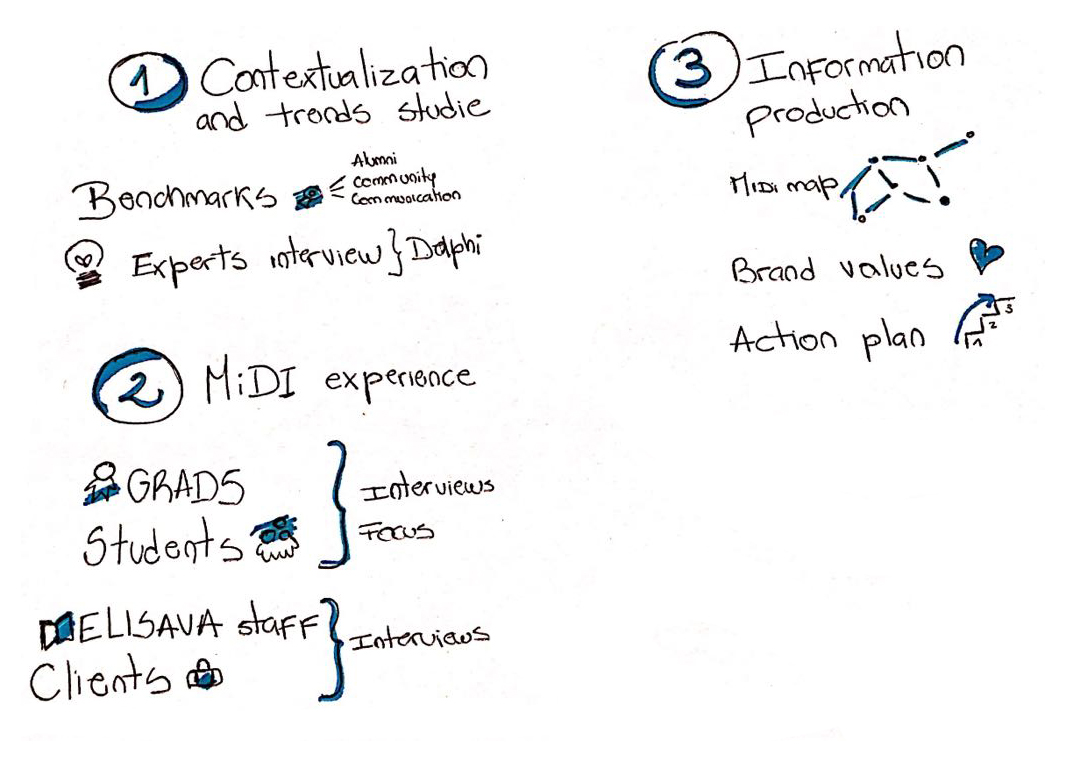 1 Contextualization
and trends studie
Benchmarks
Alumni
Community
Communication
Experts interview } Delphi
2 MiDI experience
GRADS
Students
Interviews
Focus
ELISAVA staff
Clients
Interviews
3 Information
production
MiDi map
Brand values
Action plan
1
2
3